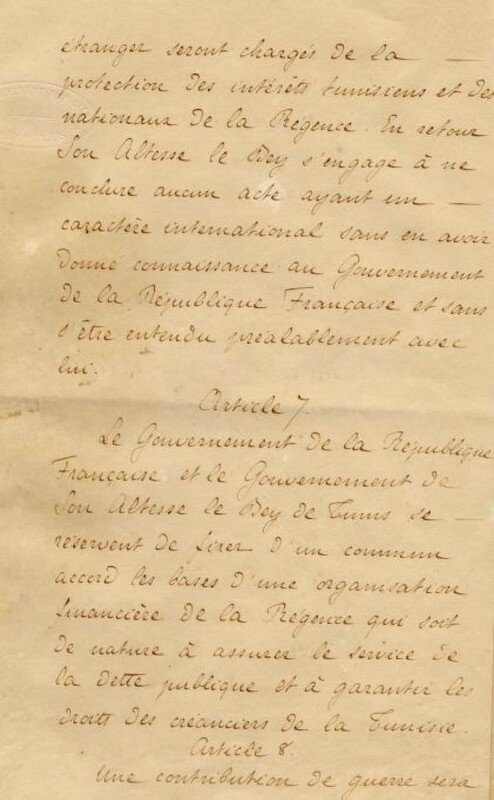 étranger seront chargés de la —
protection des intérêts tunisiens et des
nationaux de la Régence. En retour
Son Altesse le Bey s'engage à ne
conclure aucun acte ayant un —
caractère international sans en avoir
donné connaissance au Gouvernement
de la République Française et sans
s'être entendu préalablement avec
lui.
Article 7.
Le Gouvernement de la République
Française et le Gouvernement de
Son Altesse le Bey de Tunis se —
réservent de fixer d'un commun
accord les bases d'une organisation
financière de la Régence qui soit
de nature à assurer le service de
la dette publique et à garantir les
droits des créanciers de la Tunisie.
Article 8.
Une contribution de guerre sera